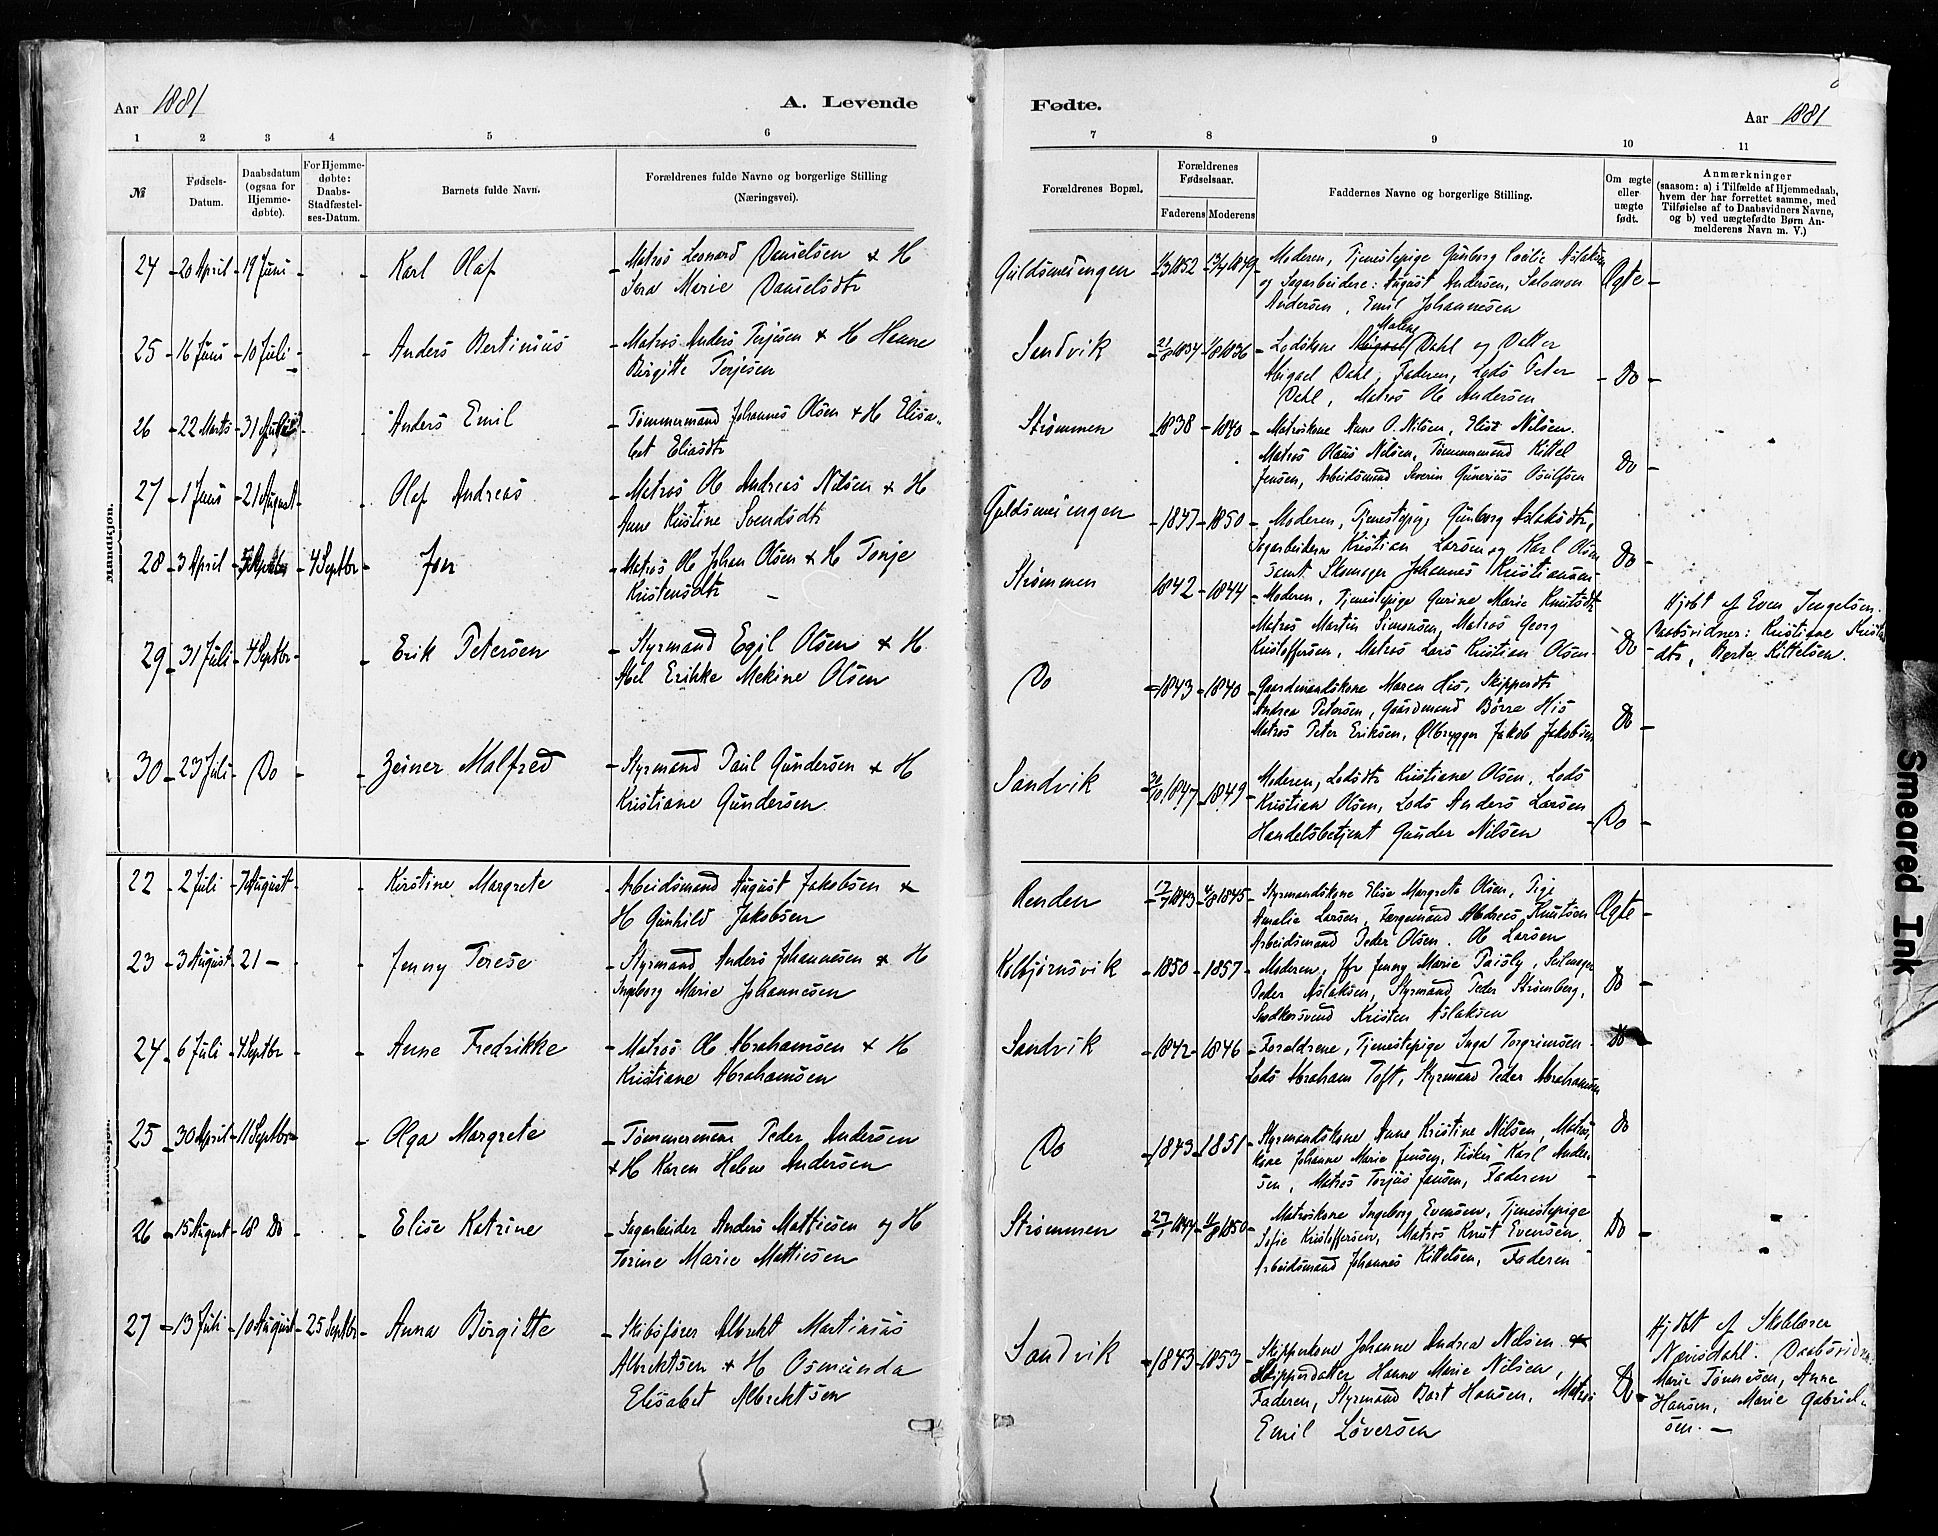 Aar 1881
A. Levende
1 2 3 4 5 6
№
Fødsels-Datum.
Daabsdatum (ogsaa for Hjemme-døbte).
For Hjemme-døbte: Daabs-Stadfæstel-ses-Datum.
Barnets fulde Navn.
Forældrenes fulde Navne og borgerlige Stilling (Næringsvei).
Mandkjøn.
24 20 April 19 Juni Karl Olaf Matros Leonard Danielsen + H
Marie Danielsdtr
25 16 Juni 10 Juli Anders Bertinius Matros Anders Terjesen + H Hanne
Birgitte Terjesen
26 22 Marts 31 Anders Emil Tømmermand Johannes Olsen + H Elisa-
bet Eliasdtr
27 1 Juni 21 August Olaf Andreas Matros Ole Andreas Nilsen + H
Anne Kristine Svendsdtr
28 3 April 4 Septbr Jon Matros Ole Johan Olsen + H Tonje
Kristensdtr
29 31 Juli 4 Septbr Erik Petersen Styrmand Egil Olsen + H
Abel Erikke Mekine Olsen
30 23 Juli Do Zeiner Malfred Styrmand Paul Gundersen + H
Kristiane Gundersen
22 2 Juli 7 August Kirstine Margrete Arbeidsmand August Jakobsen +
H Gunhild Jakobsen
23 3 August 21 – Jenny Terese Styrmand Anders Johannesen + H
Ingeborg Marie Johannesen
24 6 Juli 4 Septbr Anne Fredrikke Matros Ole Abrahamsen + H
Kristiane Abrahamsen
25 30 April 11 Septbr Olga Margrete Tømmermann Peder Andersen
+ H Karen Helene Andersen
26 15 August 18 Do Elise Katrine Sagarbeider Anders Mattiesen og H
Torine Marie Mattiesen
27 13 Juli 10 August 25 Septbr Anna Birgitte Skibsfører Albrekt Martinius
Albrektsen + H Osmunda
Elisabet Albrektsen
Fødte.
Aar 1881
7 8 9 10 11
Forældrenes Bopæl.
Forældrenes Fødselsaar.
Faderens Moderens
Faddernes Navne og borgerlige Stilling.
Om ægte eller uægte født.
Anmærkninger
(saasom: a) i Tilfælde af Hjemmedaab,
hvem der har forrettet samme, med
Tilføielse af to Daabsvidners Navne,
og b) ved uægtefødte Børn An-
melderens Navn m. V.)
Guldsmeiengen 1/3 1852 13/4 1849 Moderen, Tjenestepige Gunborg Aslaksen
og Sagarbeidere: August Andersen, Salomon Ægte
Andersen, Emil Johannesen
Malene
Sandvik 21/8 1834 1/8 1836 Lodskone Abigael Dahl og Datter
Abigael Dahl, Faderen, Lods Peter Do
Dahl, Matros Ole Andersen
Strømmen 1838 1840 Matroskone Anne O. Nilsen, Elise Nilsen.
Matros Olaus Nilsen, Tømmermand Kittel Do
Jensen, Arbeidsmand Severin Gunerius Osulfsen
Guldsmeiengen 1847 1850 Moderen, Tjenestepig. Gunborg Aslaksdtr,
Sagarbeiderne Kristian Larsen og Karl Olsen Do
samt Skomager Johannes Kristiansen
Strømmen 1842 1844 Moderen, Tjenestepige Gurine Marie Knutsdtr
Matros Martin Simonsen, Matros Georg
Kristoffersen, Matros Lars Kristian Olsen Do
Hjdbt af Even Ingelsen.
Daabsvidner: Kristiane Krist
dtr, Berte Kittelsen.
Do 1843 1840 Gaardmandskone Maren His, Skipperdtr
Andrea Petersen, Gaardmand Børre His
Matros Peter Eriksen, Ølbrygger Jakob Jakobsen Do
Sandvik 30/10 1847 1849 Moderen, Lodsdtr Kristiane Olsen, Lods
Kristian Olsen, Lods Anders Larsen Do
Handelsbetjent Gunder Nilsen
Renden 17/7 1843 4/8 1845 Styrmandskone Elise Margrete Olsen, Pige
Amalie Larsen, Færgemand Andreas Knutsen Ægte
Arbeidsmand Peder Olsen. Ole Larsen
Kolbjørnsvik 1850 1857 Moderen, Jfr Jenny Marie Paisly, Seilmager
Peder Aslaksen, Styrmand Peder Strømberg, Do
Kristen Aslaksen
Sandvik 1842 1846 Forældrene, Tjenestepige Inga Torgrimsen Do
Lods Abraham Toft, Styrmand Peder Abrahamsen
Do 1843 1851 Styrmandskone Anne Kristine Nilsen, Matros-
kone Johanne Marie Jensen, Fisker Karl Ander- Do
sen, Matros Terjus Jansen, Faderen
Strømmen 27/1 1847 11/8 1850 Matroskone Ingeborg Evensen, Tjenestepige
Sofie Kristoffersen, Matros Knut Evensen. Do
Arbeidsmand Johannes Kittelsen, Faderen
Sandvik 1843 1853 Skipperkone Johanne Andrea Nilsen
Skipperdatter Hanne Marie Nilsen,
Faderen, Styrmand Bart Hansen, Matros Do
Emil Løversen
Hjdbt af Skolelærer
Nævisdahl. Daabsvidner
Marie Tønnesen, Anne
Hansen, Marie Gabriel-
sen.
Smeared Ink